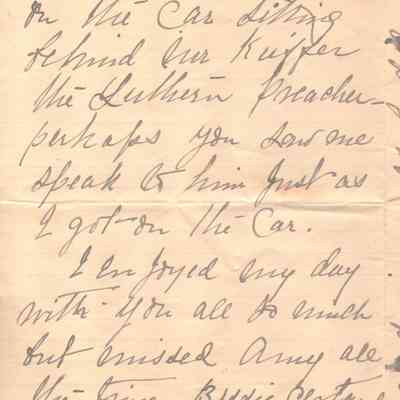 on the Car sitting
behind Mr Kieffer
the Lutheren Preacher -
perhaps you saw me
speak to him just as
I got on the Car.
I enjoyed my day
with you all so much
but missed Amy all
the time